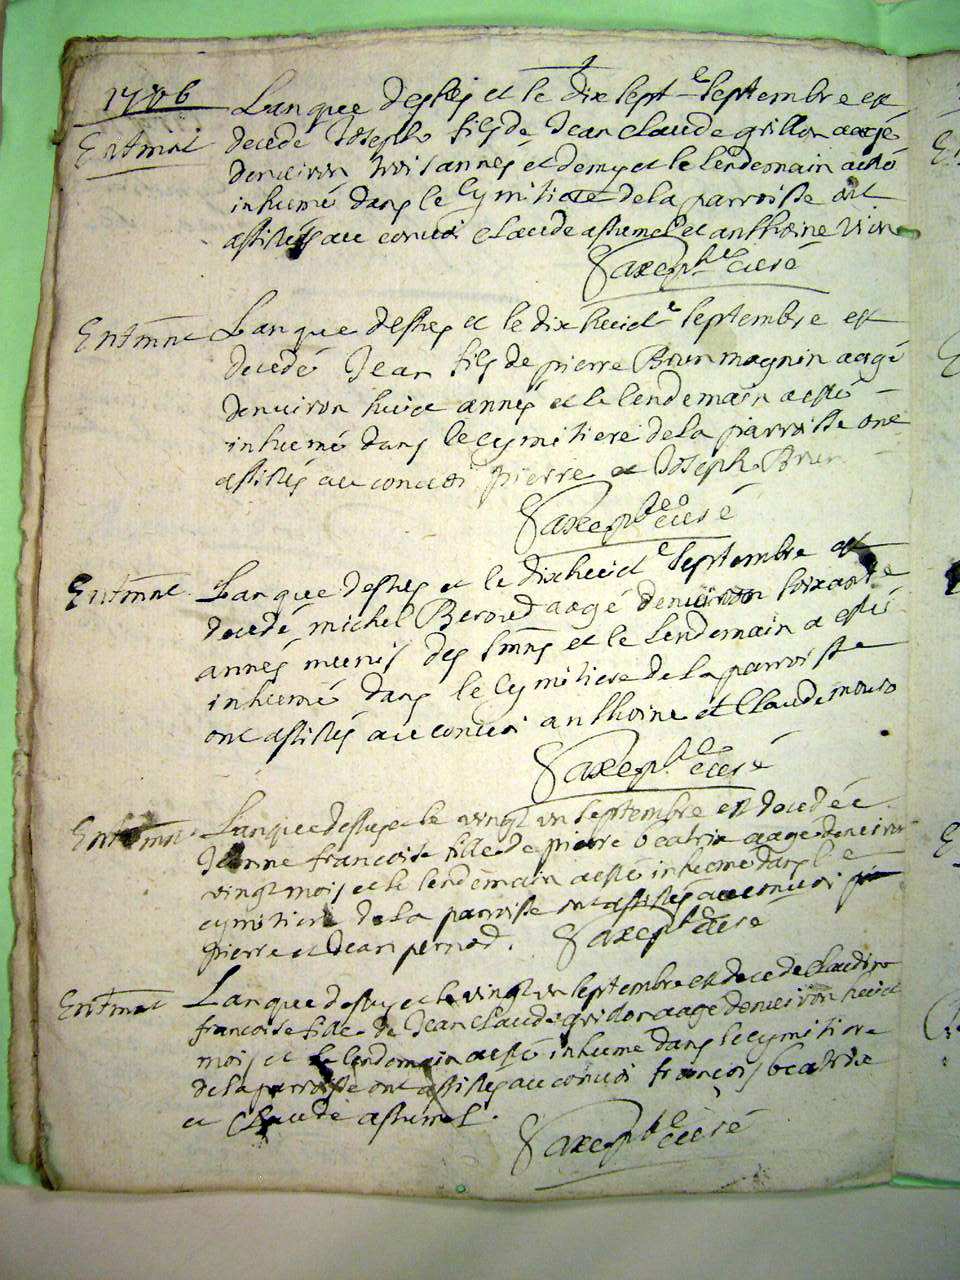 1706
Lan que dessus et le dix sept.e septembre est
Enterremt decede Joseph fils de Jean Claude grillon aagé
denuiron trois annés et demy et le lendemain a esté
inhumé dans le cymitiere de la parroisse ont
assistés au conuoi Claude assumel et anthoine
Saxe pbre curé
Enterremt Lan que dessus et le dix huict.e septembre est
decedé Jean fils de pierre Brun magnin aagé
denuiron huict annés et le lendemain a esté
inhumé dans le cymitiere de la parroisse ont
assistés au conuoi pierre et Joseph Brun
Saxe pbre curé
Enterremt Lan que dessus et le dix huict.e septembre est
decedé michel Beroud aagé denuiron soixante
annés munis des smns et le lendemain a esté
inhumé dans le cymitiere de la parroisse
ont assistés au conuoi anthoine et Claude
Saxe pbre curé
Enterremt Lan que dessus et le vingt un septembre est decedée
Jeanne francoise fille de pierre beatrix aagé denuiron
vingt mois et le lendemain a esté inhumé dans le
cymitiere de la parroisse ont assistés au conuoi
pierre et Jean pernod. Saxe pbre curé
Enterremt Lan que dessus et le vingt un septembre est decede Claudine
francoise fille de Jean Claude grillon aagé denuiron huict
mois et le lendemain a esté inhumé dans le cymitiere
de la parroisse ont assistés au conuoi francois beatrix
et Claude assumel.
Saxe pbre curé